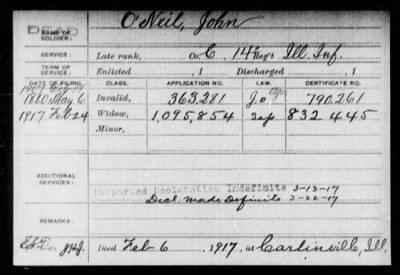 DEAD
NAME OF SOLDIER: O'Neil, John
SERVICE: Late rank, Co. C, 14 Reg't Ill. Inf.
TERM OF SERVICE: Enlisted , 1 Discharged , 1
DATE OF FILING. CLASS. APPLICATION NO. LAW. CERTIFICATE NO.
1880 May 6 Invalid, 363,281 790,261
1917 Feb 24 Widow, 1,095,854 832 445
Minor,
ADDITIONAL SERVICES:
Purported Declaration Indefinite 3-13-17
Decl. made Definite 3-22-17
REMARKS:
Died Feb 6, 1917, at Carlinville, Ill.